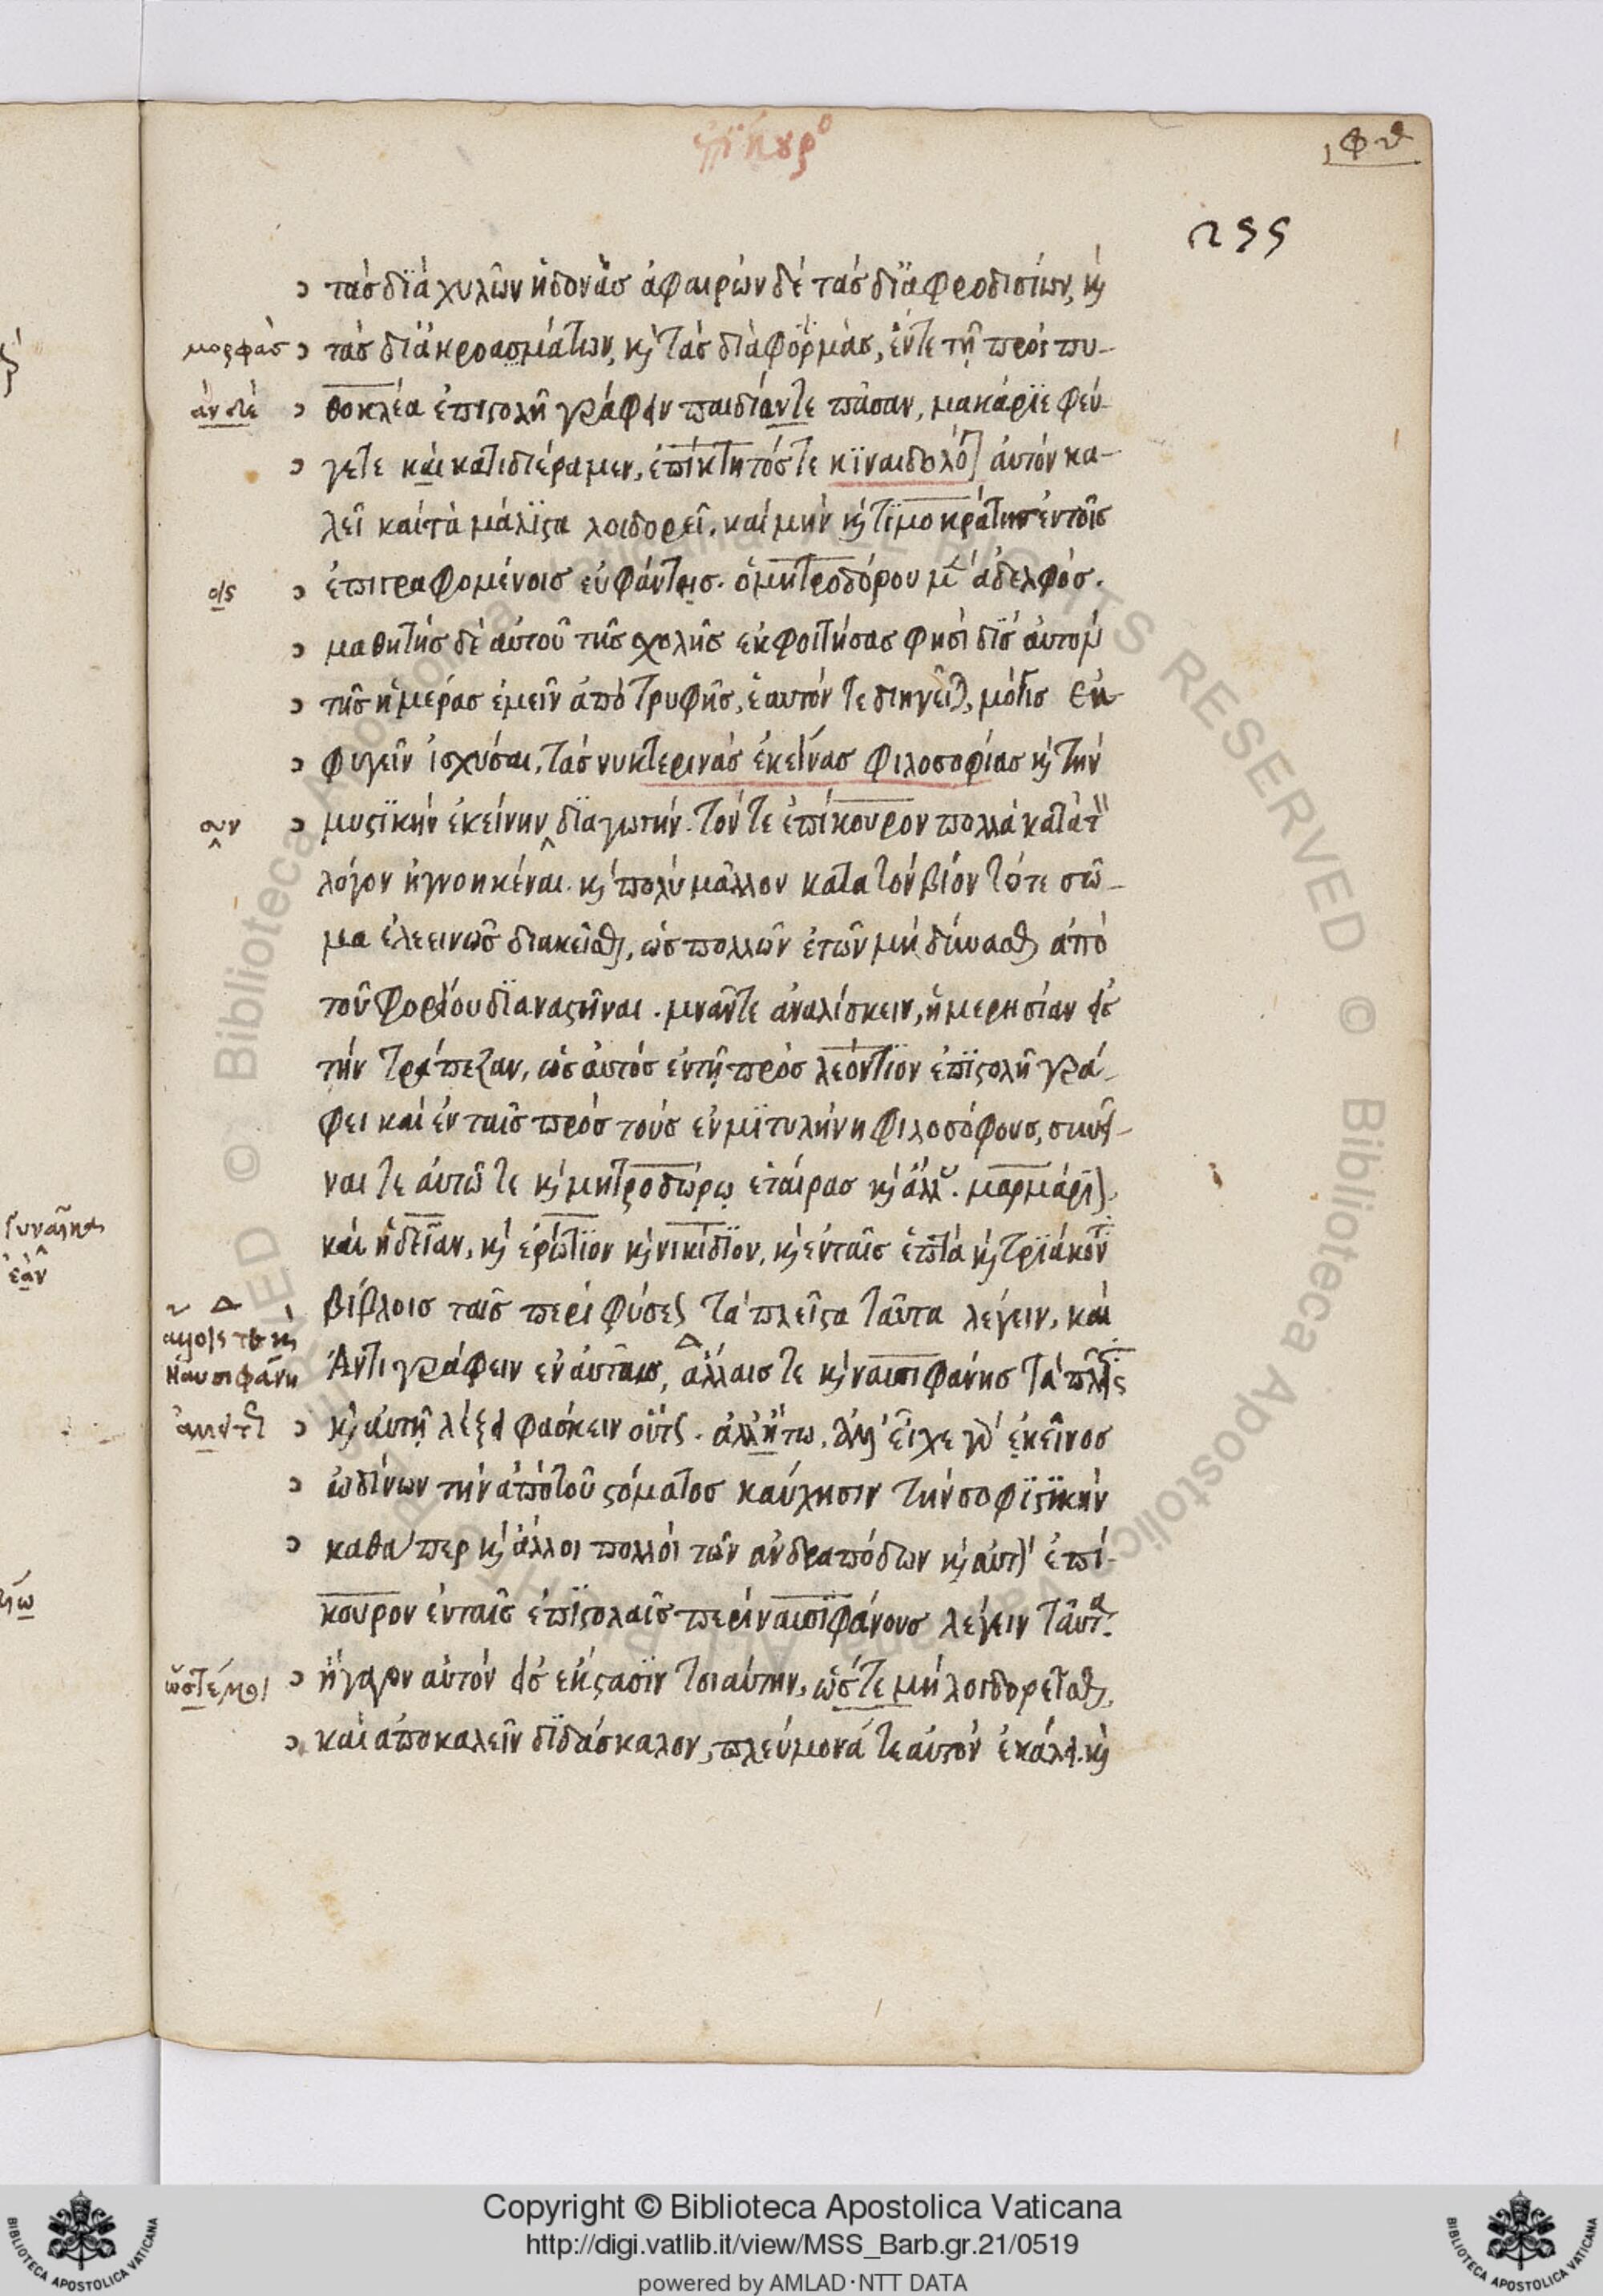 ἐπίκουρο
φθ
τὰσ διὰ χυλῶν ἡδονὰσ ἀφαιρών δὲ τὰσ δι ἀφροδισίων, κὶ
μορφὰσ
τὰσ δι ἀκροασμάτων, κὶ τὰσ διὰ φορμὰσ, ἔν τε τῇ πρὸς πυ-
ἀν δὲ
θοκλέα ἐπιστολῇ γράφειν παιδίαν τε πᾶσαν, μακάριε φεύ-
γετε καὶ κατιδιέραμεν, ἐπίκτητός τε κϊναιδολό αὐτὸν κα-
λεῖ καὶ τὰ μάλϊστα λοιδορεῖ. καὶ μὴν κὶ τϊμοκράτης ἐν τοῖσ
οἱς
ἐπιγραφομένοισ εὐφάντοισ. ὁ μητροδόρου μὲν ἀδελφόσ.
μαθητὴσ δὲ αὐτοῦ τῆσ σχολῆσ ἐκφοιτήσας φησὶ δὶσ αὐτὸν
τῆσ ἡμέρασ ἐμεῖν ἀπὸ τρυφῆσ, ἑαυτόν τε διηγεῖται, μόγισ ἐκ
φυγεῖν ἰσχύσαι, τὰσ νυκτερινὰσ ἐκείνασ φιλοσοφίασ κὶ τὴν
συν
μυστϊκὴν ἐκείνην διαγωγήν. τόν τε ἐπίκουρον πολλὰ κατὰ τ
λόγον ἠγνοηκέναι. κὶ πολὺ μᾶλλον κατα τὸν βίον τό τε σῶ-
μα ἐλεεινῶσ διακεῖσθαι, ὡσ πολλῶν ἐτῶν μὴ δύνασθαι ἀπὸ
τοῦ φορείου διαναστῆναι. μνᾶν τε ἀναλίσκειν, ἡμερησίαν εἰσ
τὴν τράπεζαν, ὡσ αὐτὸσ ἐν τῇ πρὸσ λεόντϊον ἐπϊστολῇ γρά-
φει καὶ ἐν ταῖσ πρὸσ τοὺσ ἐν μϊτυλήνη φιλοσόφουσ, συνεῖ-
ναι τε αὐτῶ τε κὶ μητροδώρῳ ἑταίρασ κὶ ἄλλ. μαρμάρι
καὶ ἡδεῖαν, κὶ ἐρώτϊον κὶ νικίδϊον, κὶ ἐν ταῖσ ἑπτὰ κὶ τρϊάκοντ
βίβλοισ ταῖσ περὶ φύσεως τὰ πλεῖστα ταῦτα λέγειν, καὶ
Ἀντιγράφειν ἐν αὐταῖσ, ἄλλαισ τε κὶ ναυσιφάνησ τὰ πλεῖς
ναυσιφάνη
κὶ αὐτῇ λέξει φάσκειν οὕτως. ἀλλ ἤτω. εἶχε γὰρ ἐκεῖνοσ
ὠδίνων τὴν ἀπὸ τοῦ στόματοσ καύχησιν τὴν σοφϊστϊκὴν
καθάπερ κὶ ἄλλοι πολλοὶ τῶν ἀνδραπόδων κὶ αὐτὸν ἐπί-
κουρον ἐν ταῖσ ἐπϊστολαῖσ περὶ ναυσϊφάνουσ λέγειν ταῦτα.
ὥστέ μοι
ἤγαγον αὐτὸν εἰσ ἔκστασϊν τοιαύτην, ὥστε μὴ λοιδορεῖσθαι,
καὶ ἀποκαλεῖν δϊδάσκαλον, πλεύμονά τε αὐτὸν ἐκάλει κὶ
Copyright © Biblioteca Apostolica Vaticana
http://digi.vatlib.it/view/MSS_Barb.gr.21/0519
powered by AMLAD·NTT DATA